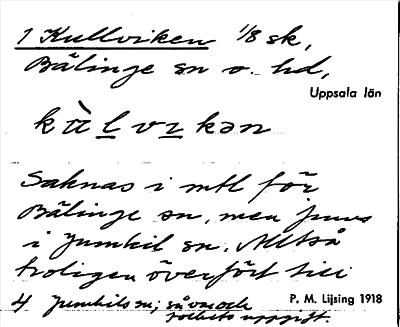 1 Kullviken 1/8 sk,
Bälinge sn o. hd,
Uppsala län
Saknas i mtl för
Bälinge sn, men finns
i Jumkil sn. Alltså
troligen överfört till
4 Jumkils sn; så var och
folkets uppgift.
P. M. Lijsing 1918